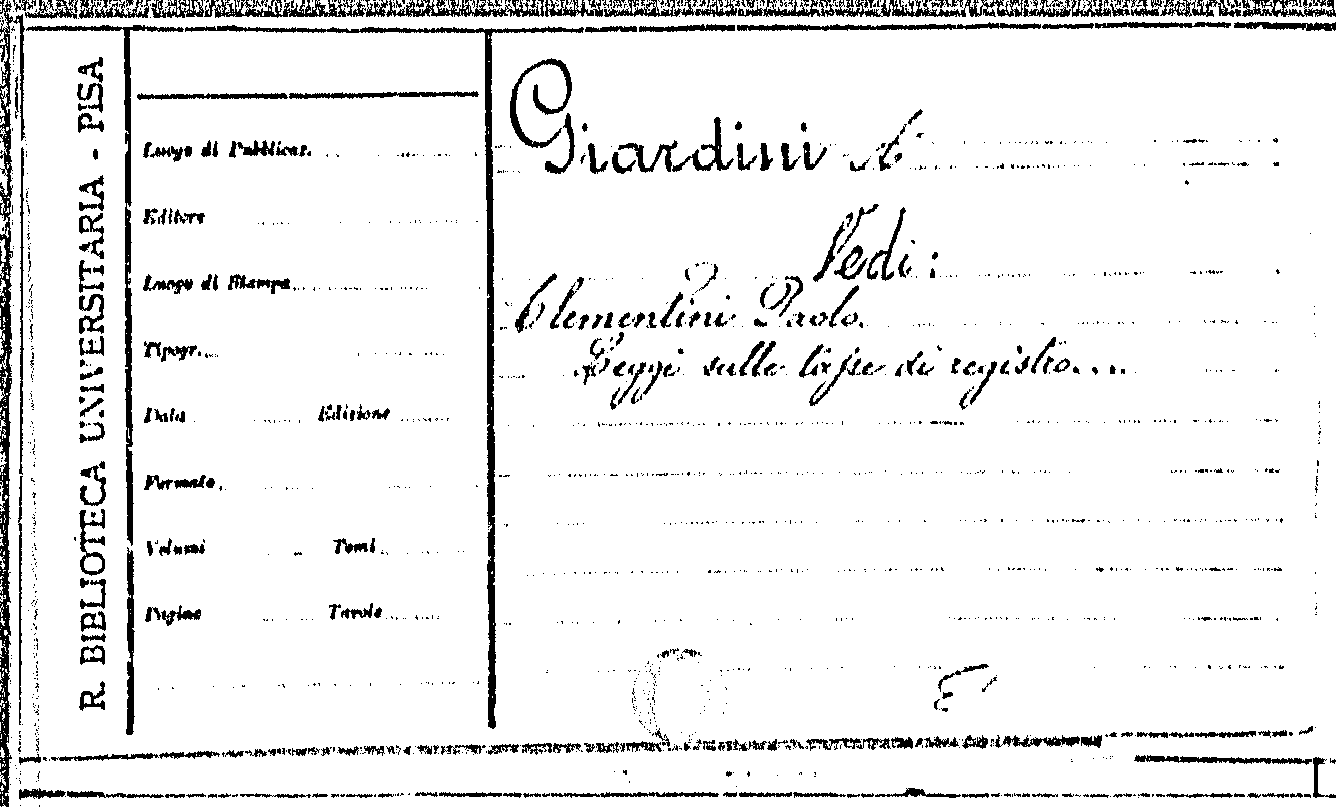 R. BIBLIOTECA UNIVERSITARIA - PISA
Luogo di Pubblicaz.
Editore
Luogo di Stampa
Tipogr.
Data Edizione
Formato
Volumi Tomi
Pagine Tavole
Giardini A.
Vedi:
Clementini Paolo.
Leggi sulle tasse di registro....